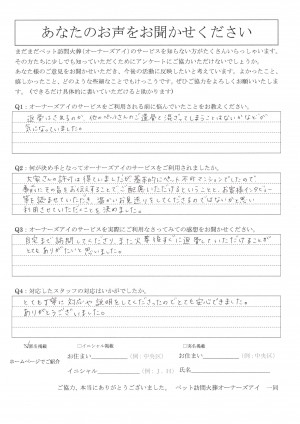 あなたのお声をお聞かせください
まだまだペット訪問火葬(オーナーズアイ)のサービスを知らない方がたくさんいらっしゃいます。
その方たちに少しでも知っていただくためにアンケートにご協力いただけないでしょうか。
あなた様のご意見をお聞かせいただき、今後の活動に反映したいと考えています。よかったこと、
嬉しかったこと、どのような些細なことでもけっこうです。ぜひご協力をよろしくお願いいたします。
(できるだけ具体的に書いていただけると助かります)
Q1:オーナーズアイのサービスをご利用される前に悩んでいたことをお教えください。
遺骨はきれるのが 他のペットさんのご遺骨と混ざってしまうことはないかなどが
気になっていました。
Q2:何が決め手となってオーナーズアイのサービスをご利用されましたか。
大家さんの許可は得ていましたが基本的にペット不可マンションでしたので
事前にその旨をお伝えすることで、ご配慮いただけるということと、お客様インタビュー
等を読ませていただき、温かいお見送りをしてくださるのではないかと思い
利用させていただくことを決めました。
Q3:オーナーズアイのサービスを実際にご利用なさってみての感想をお聞かせください。
自宅まで訪問してくださり、また火葬後すぐに遺骨としていただけることが
とてもありがたいと思いました。
Q4:対応したスタッフの対応はいかがでしたか。
とても丁寧に対応や説明をしてくださったのでとても安心できました。
ありがとうございました。
匿名掲載 □イニシャル掲載 □実名掲載
ホームページでご紹介
お住まい (例:中央区) お住まい (例:中央区)
イニシャル (例:J.H) 氏名
ご協力、本当にありがとうございました。 ペット訪問火葬オーナーズアイ 一同